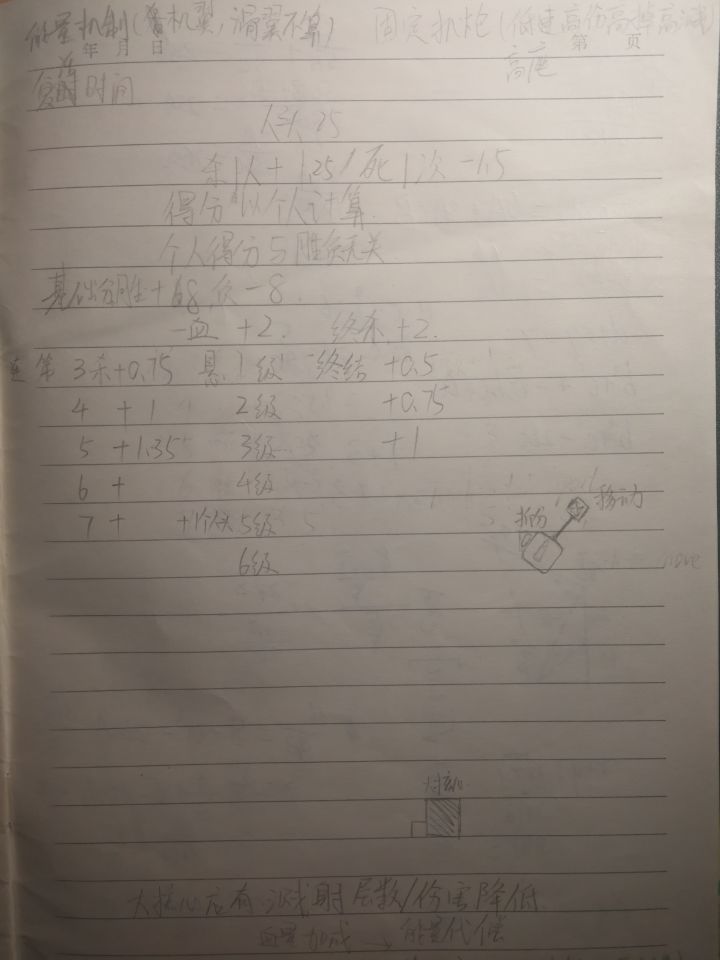 能量机制(机翼,滑翼不算) 固定机枪(低速高伤高掉高减)
年 月 日 第 页
高底
复活时间
人头 25
杀1人+1.25/死1次-1.5
得分以个人计算.
个人得分与胜负无关
基础分胜+68,负-8.
一血 +2. 终杀.+2.
连 第 3杀+0.75 悬.1级 终结 +0.5
4 +1 2级 +0.75
5 +1.35 3级 +1
6 + 4级
7 + 5级
移动
6级
大核心店有 层数/伤害降低
加成 → 能量代偿